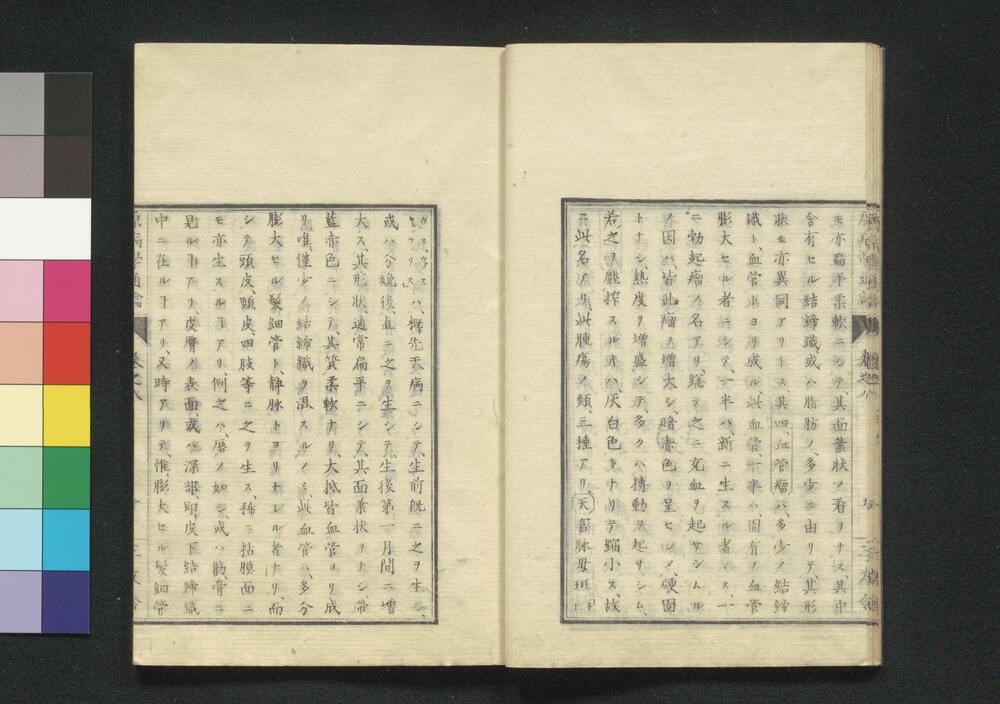 モ亦扁平柔軟ニシテ其面葉状ノ看ヲナス其中
含有セル結締織或ハ脂肪ノ多少ニ由リテ其形
状モ亦異同アリトス四血管瘤ハ多少ノ結締
織ト血管トヨリ成ル此血管ハ半ハ固有ノ血管
膨大セル者ニシテ一半ハ新ニ生スル者ィス、一
ニ勃起瘤ノ名アリ、総テ之ニ充血ヲ起サシムル
ノ因ハ皆此瘤ノ増大シ、暗赤色ヲ呈ヒシメ、硬固
トナシ、熱度ヲ増盛シテ、多クハ搏動ヲ起サシム、
若之ヲ壓搾スルオハ、灰白色トナリテ縮小ス、故
ニ此名ノリ、此腫瘍ノ類、三種アリ、天畐脉母斑
ハ、概先天病ニシテ、生前既ニ之ヲ生シ、
或ハ分娩後、直ニ之ヲ生シテ、生後第一月間ニ増
大ス、其形状、通常扁平ニシテ、其面葉状ヲナシ、帯
藍赤色ニシテ、其質柔軟ナリ、大抵皆血管ヨリ成
リ、唯僅少ノ結締織ヲ混スルノミ、此血管ハ、多分
膨大セル髮細管ト、静脉トヨリナレル者ナリ、而
シテ頭皮、顋皮、四肢等ニ之ヲ生ス、稀ニ粘膜面ニ
モ亦生スルヿアリ、例之ハ、唇ノ如シ、或ハ筋骨ニ
見ルヿアリ、皮膚ノ表面、或ハ深部、即皮下結締織
中ニ在ルヿアリ、又時アリテ、惟膨大セル髮細管
原病學通論
巻之八